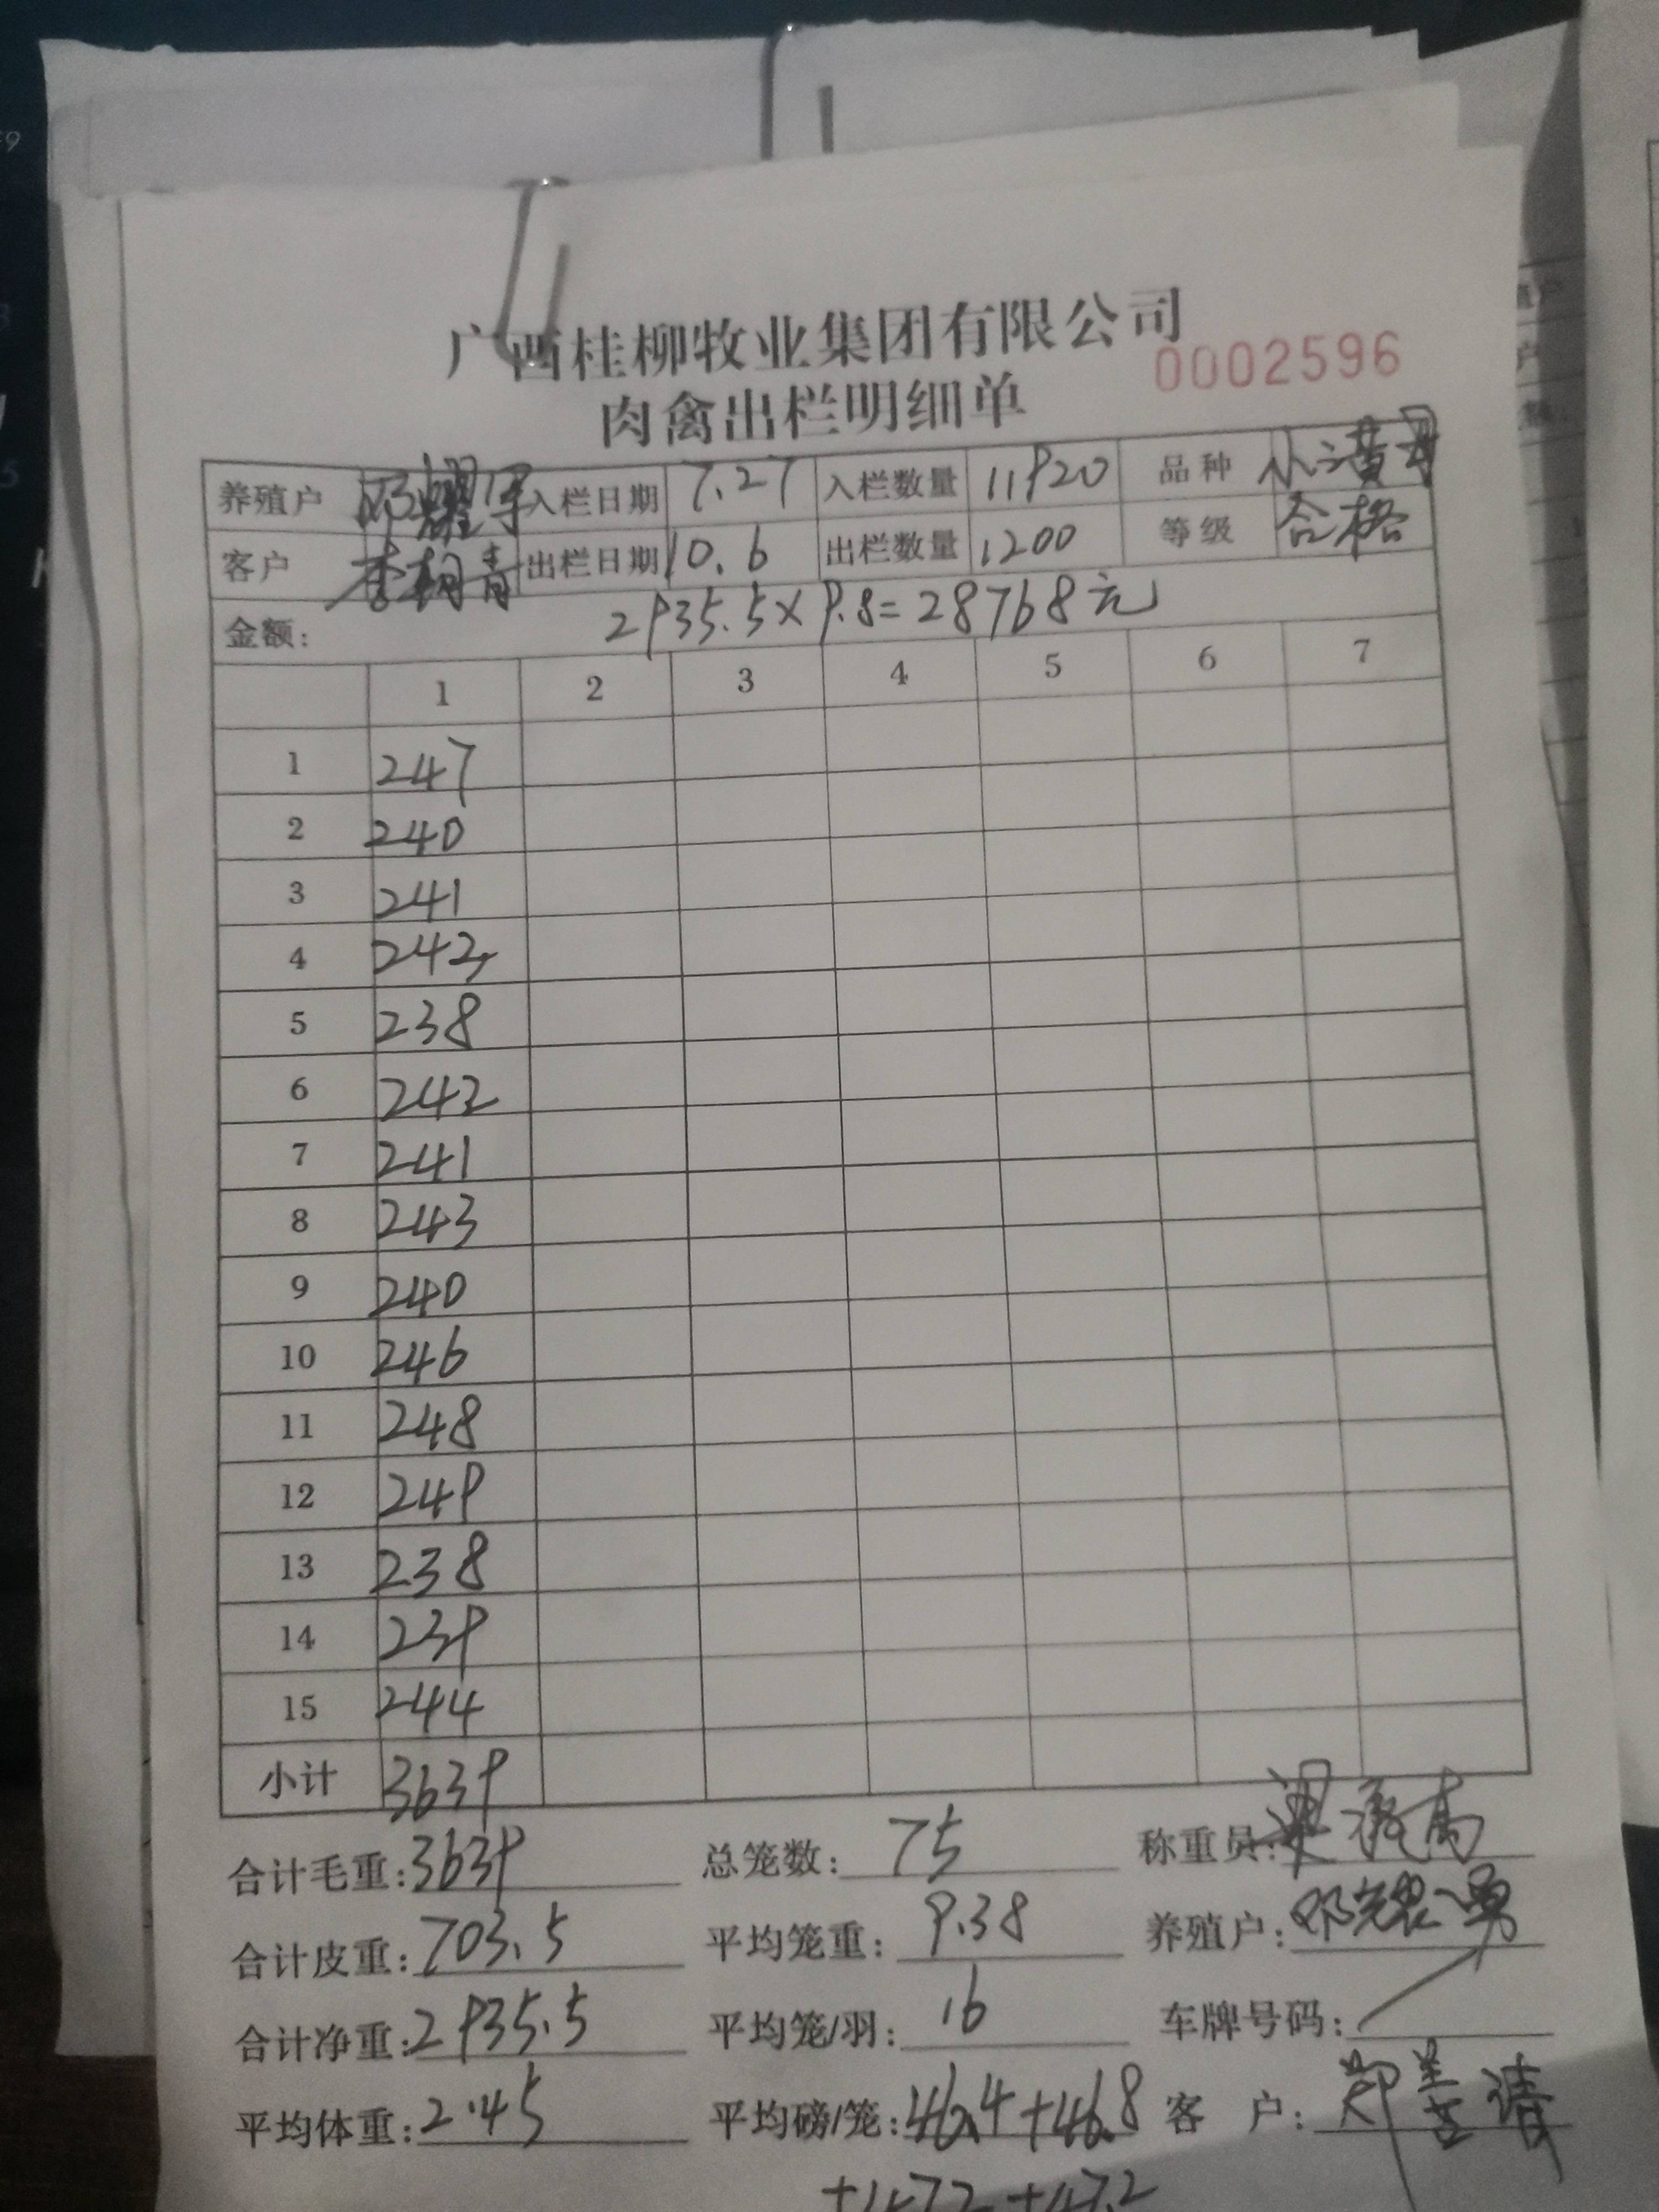 广西桂柳牧业集团有限公司
0002596
肉禽出栏明细单
养殖户 入栏日期 7.27 入栏数量 11920 品种 小黄
客户 李 青 出栏日期 10.6 出栏数量 1200 等级 合格
金额: 2935.5×9.8=28768元
1 2 3 4 5 6 7
1 247
2 240
3 241
4 243
5 238
6 242
7 241
8 243
9 240
10 246
11 248
12 249
13 238
14 239
15 244
小计 3639
合计毛重: 3639 总笼数: 75 称重员:
合计皮重: 703.5 平均笼重: 9.38 养殖户:
合计净重: 2935.5 平均笼/羽: 16 车牌号码:
平均体重: 2.45 平均磅/笼: 46.4+46.8 客 户: 郑善
+47.2+47.2